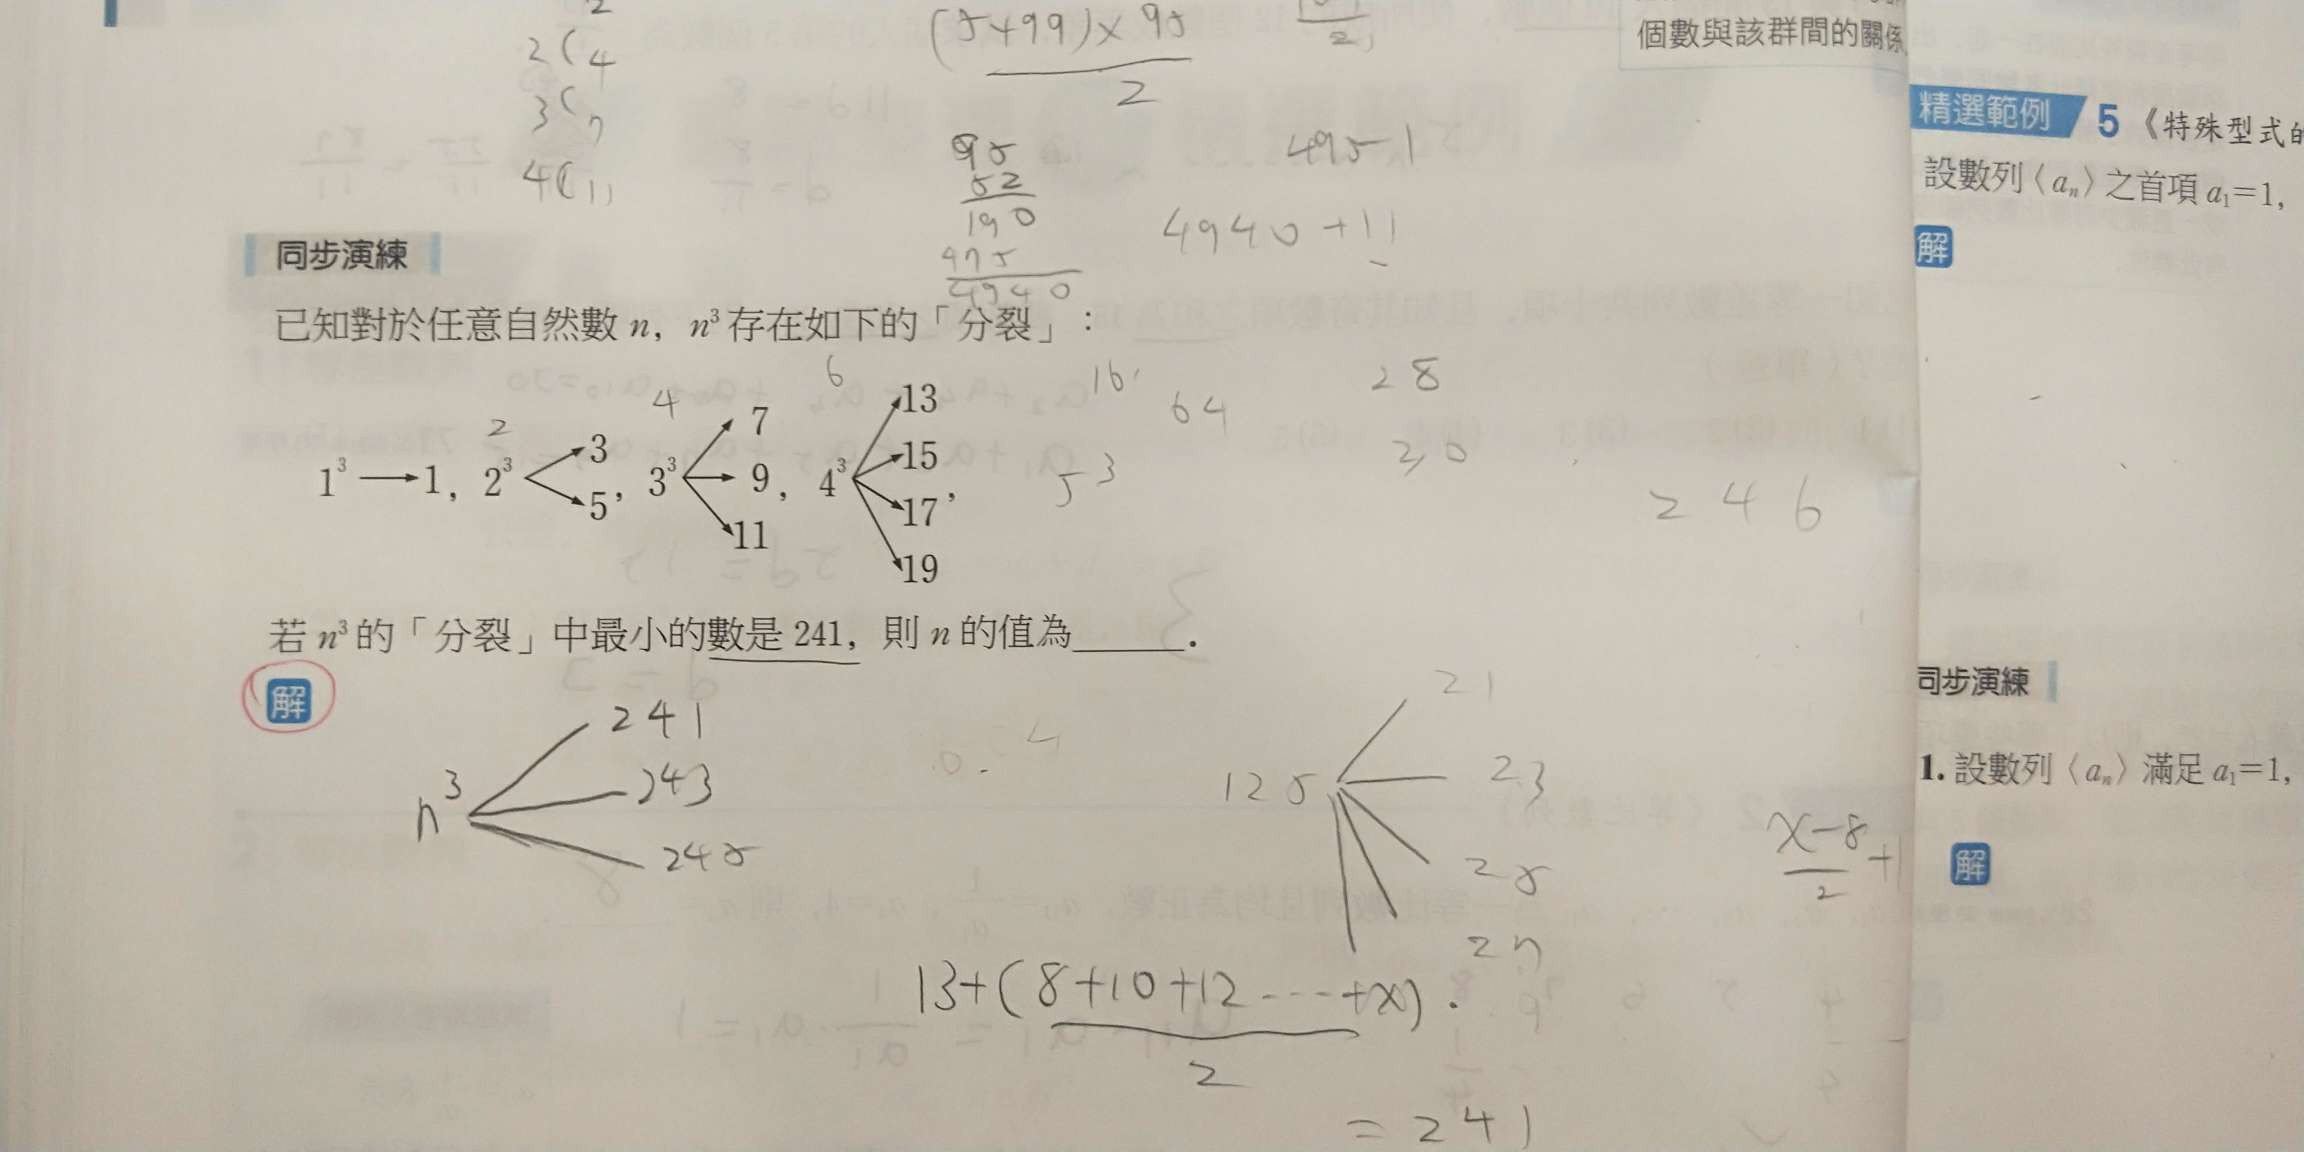 2
2 ( 4
3 ( 7
4 ( 11
(5+99)×95
2
2
95
52
190
475
4940
4951
4940+11
個數與該群間的關係
同步演練
已知對於任意自然數 n，n³ 存在如下的「分裂」：
2 4 6 16 64 28
30
1³ → 1， 2³ 3 5， 3³ 7 9 11， 4³ 13 15 17 19， 5³
246
若 n³ 的「分裂」中最小的數是 241，則 n 的值為______．
解
n³ 241
243
245
125 21
23
25
27
13+(8+10+12----+x)
2
=241
x-8
2 +1
精選範例 5 《特殊型式的
設數列〈aₙ〉之首項 a₁=1，
解
同步演練
1. 設數列〈aₙ〉滿足 a₁=1，
解